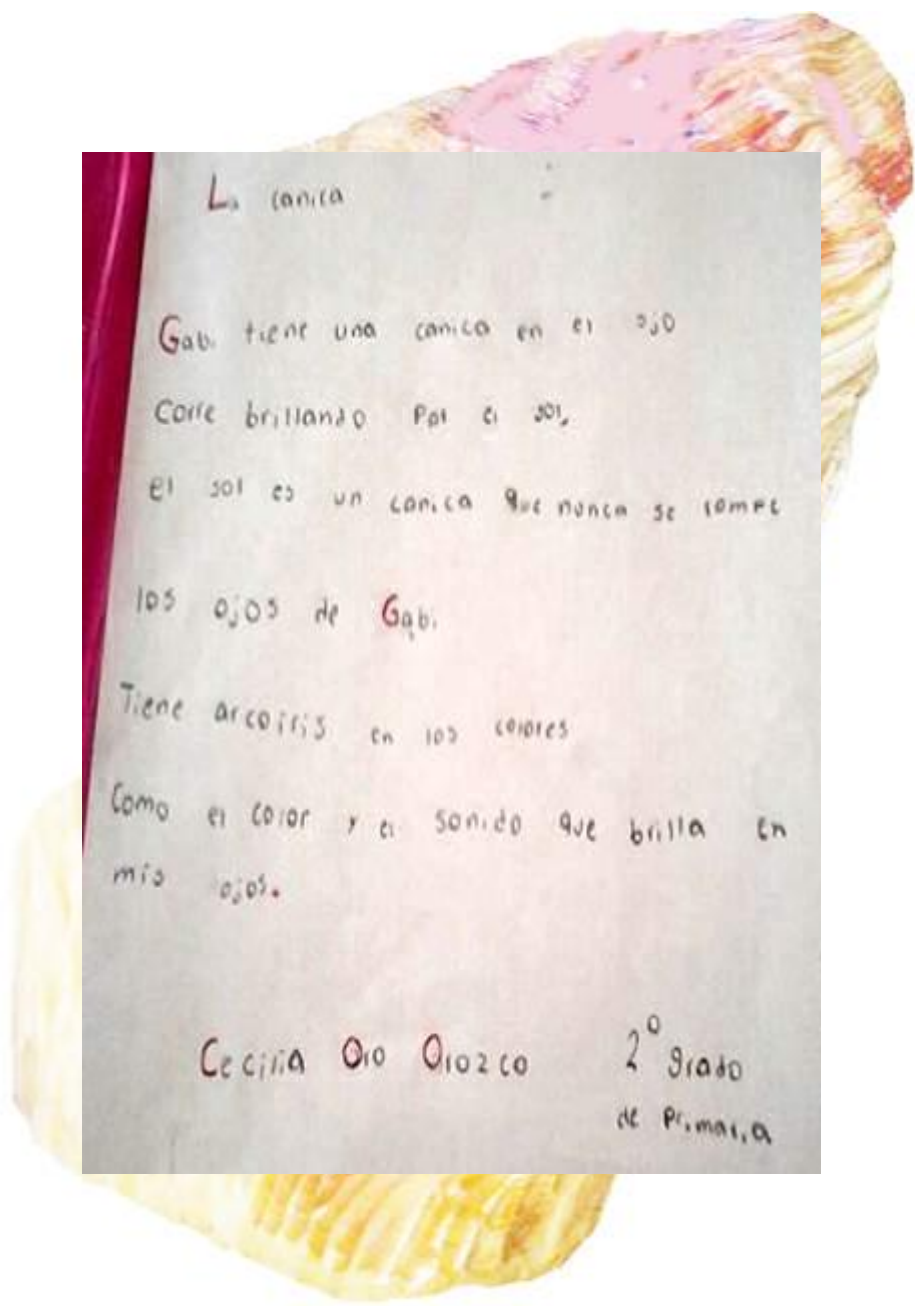 La canica
Gabi tiene una canica en el ojo
Corre brillando Por el sol,
el sol es un canica que nunca se rompe
los ojos de Gabi
Tiene arcoiris en los colores
Como el color y el sonido que brilla en
mis ojos.
Cecilia Oro Orozco 2° grado
de Primaria